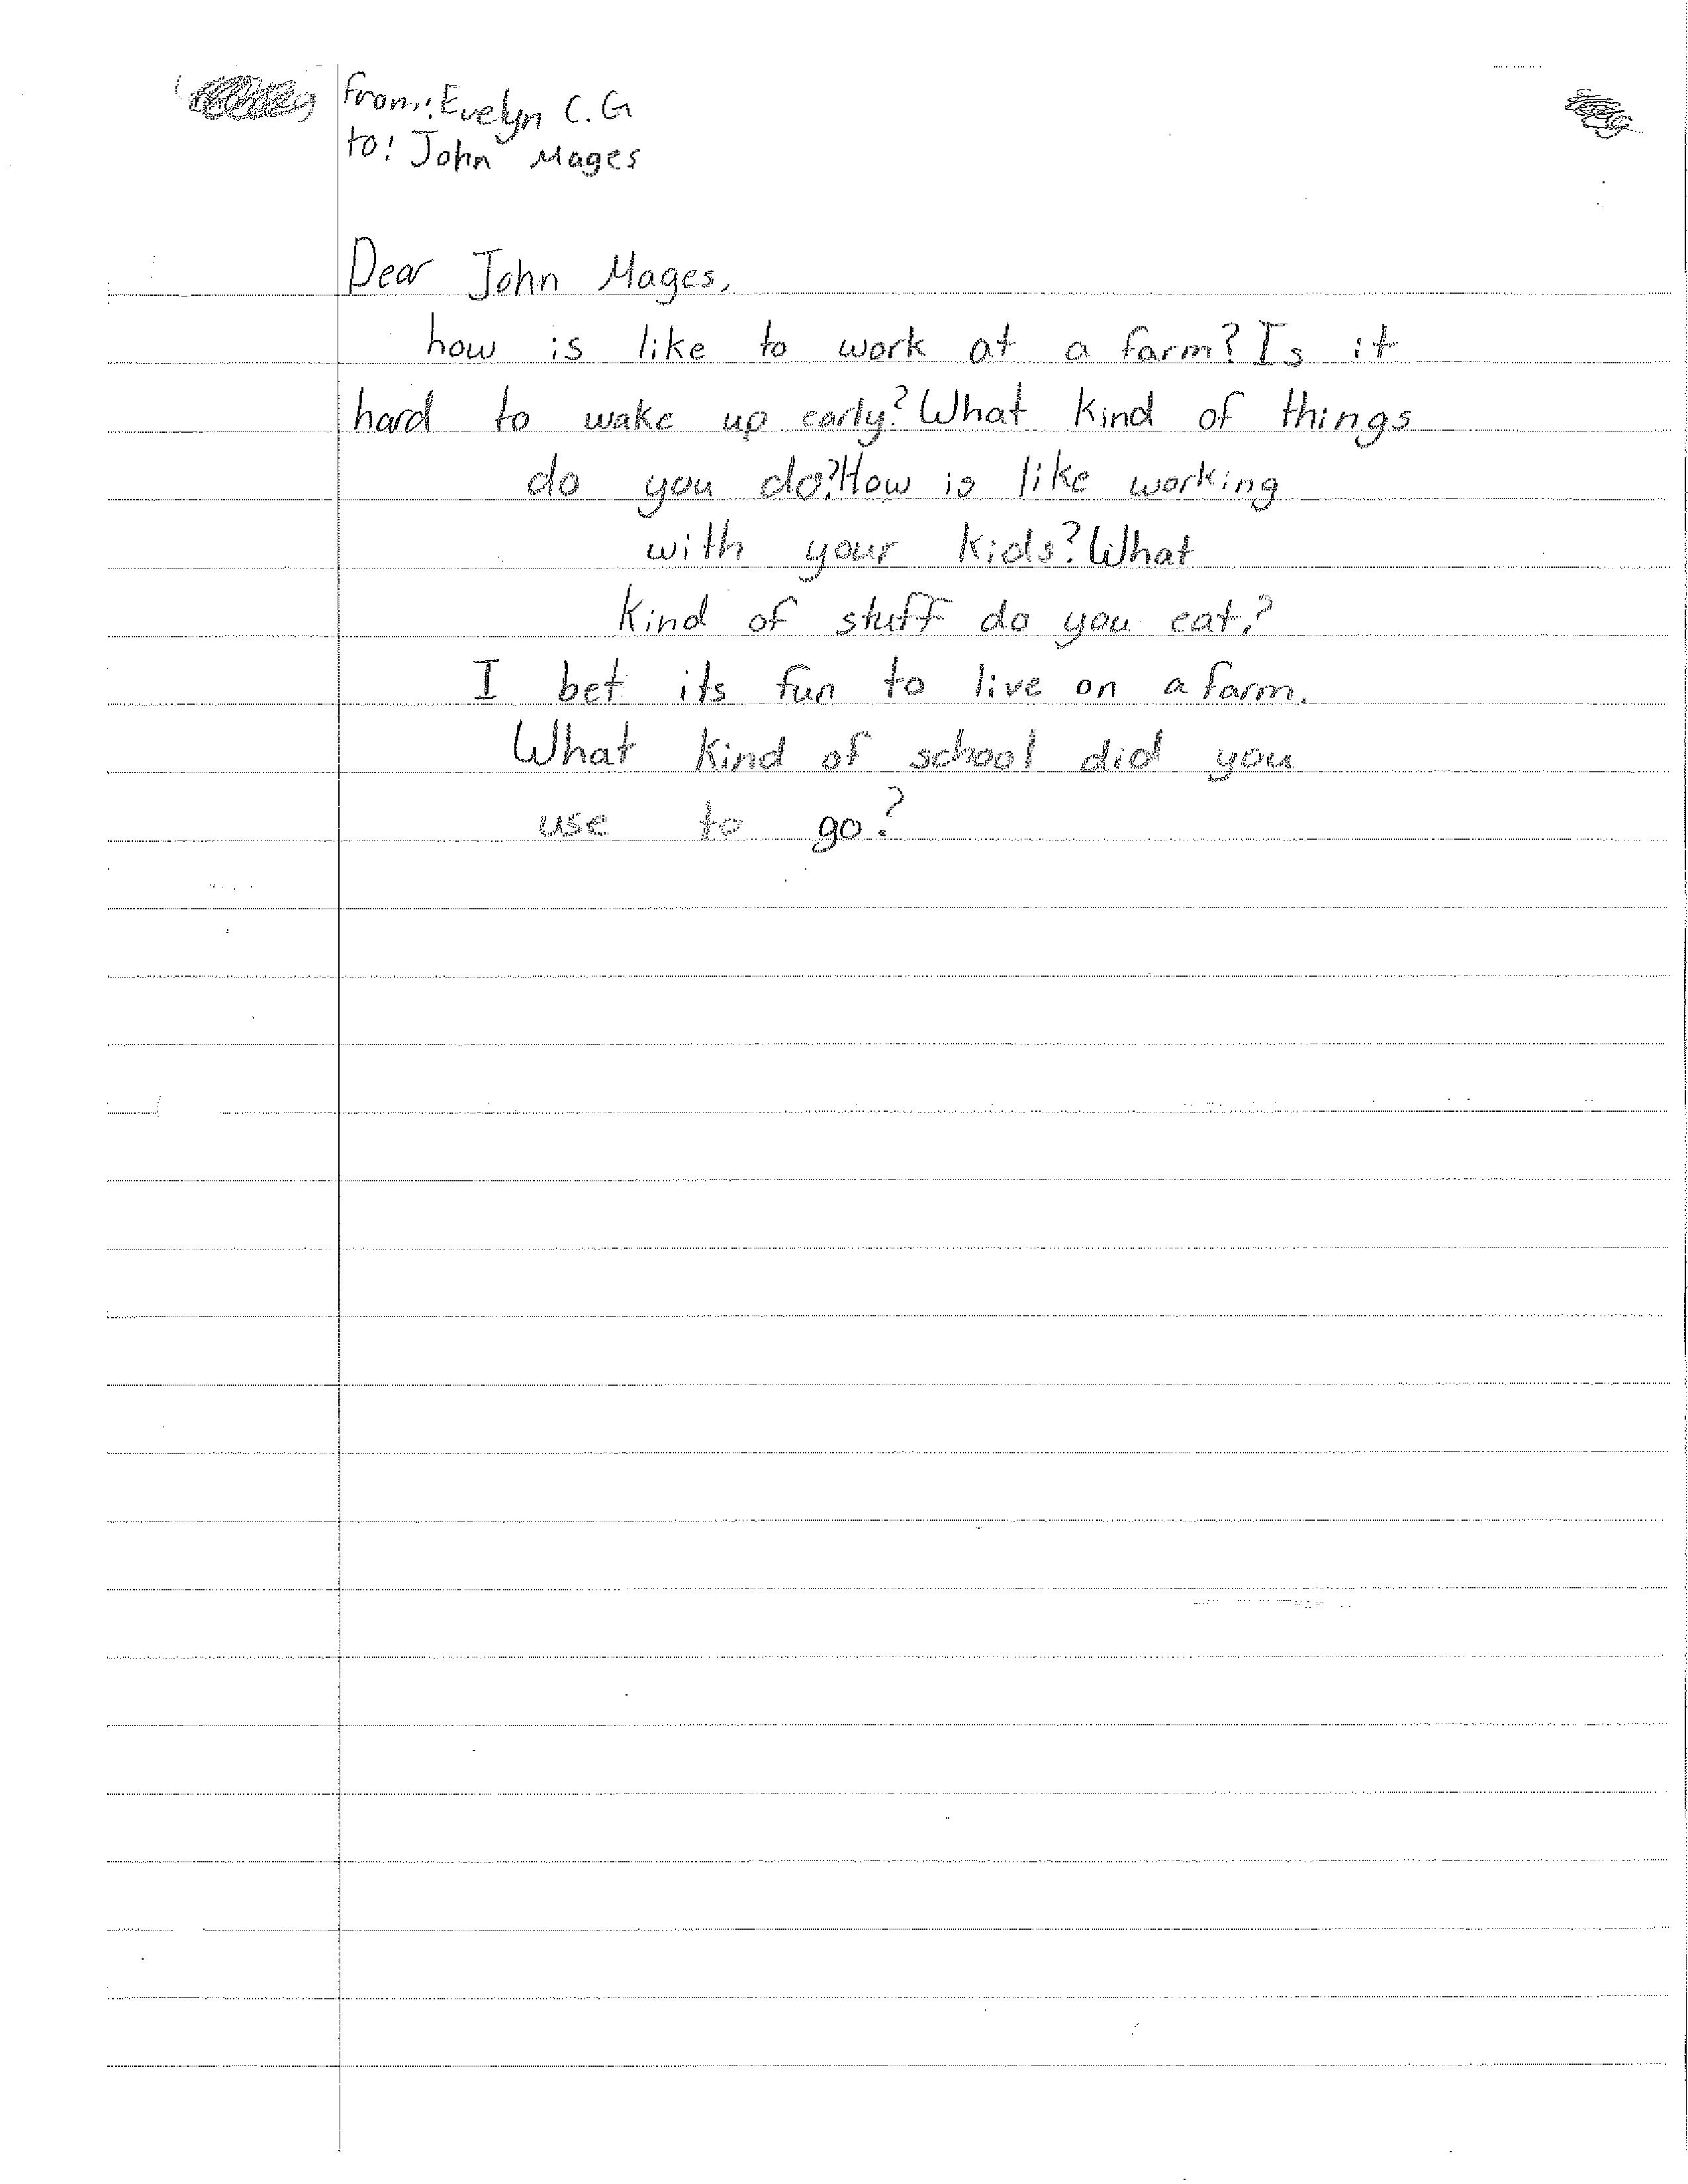 From: Evelyn C.G
to: John Mages
Dear John Mages,
how is like to work at a farm? Is it
hard to wake up early? What kind of things
do you do? How is like working
with your kids? What
kind of stuff do you eat?
I bet its fun to live on a farm.
What kind of school did you
use to go?